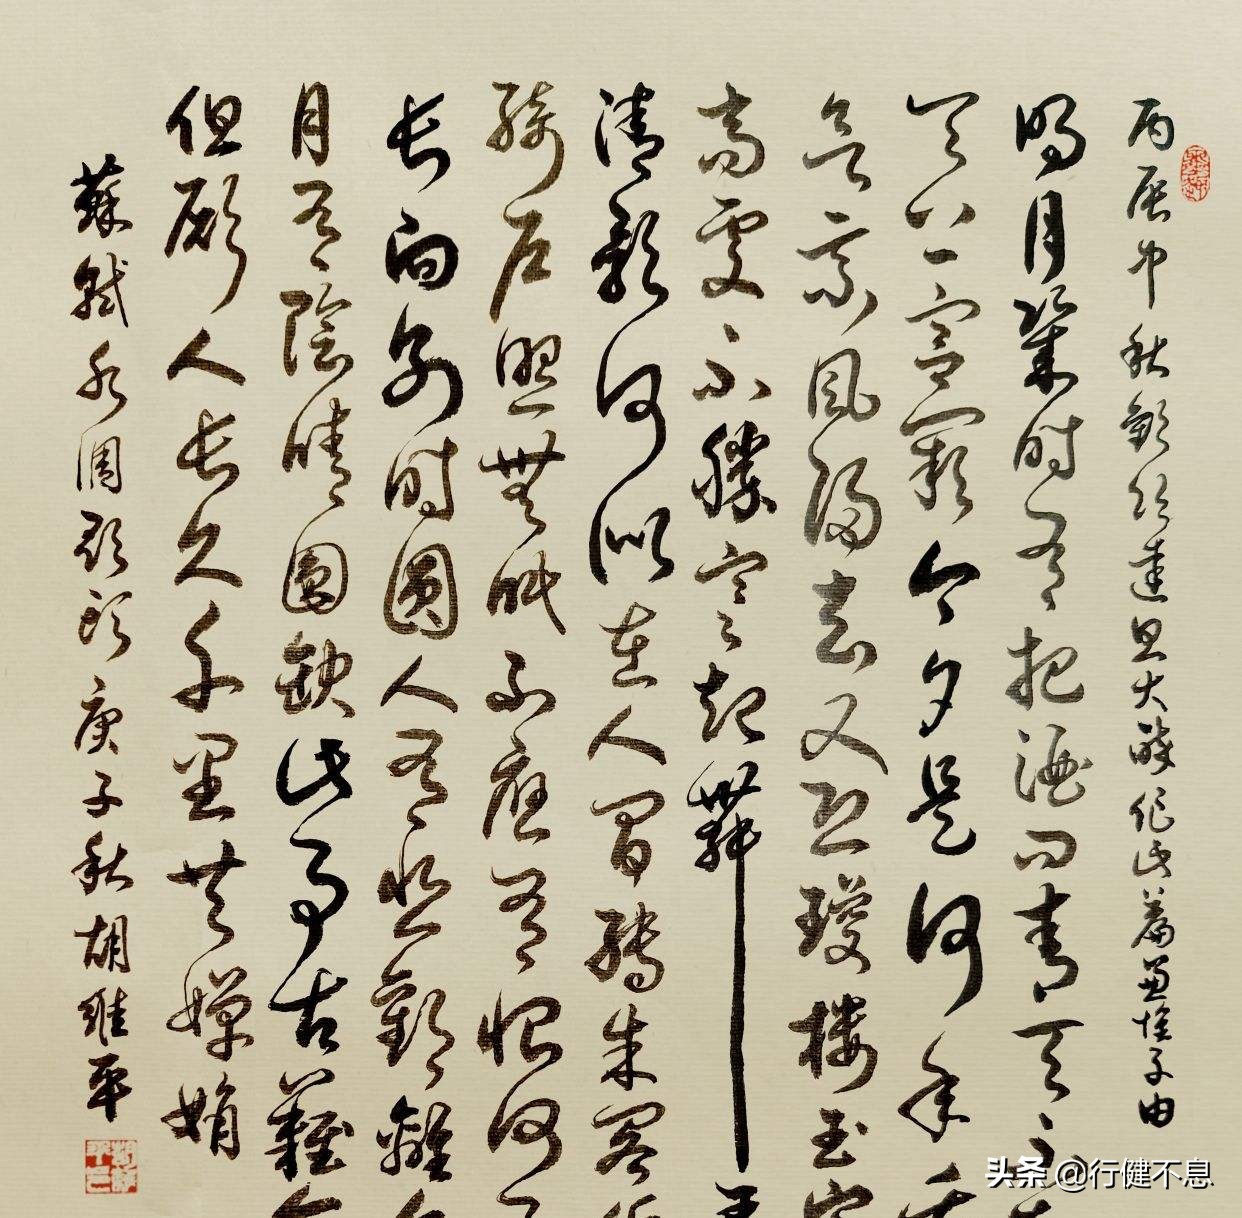 丙辰中秋歡飲達旦大醉作此篇兼懷子由
明月幾时有把酒问青天不
天上宮闕今夕是何年
欲乘風歸去又恐瓊楼玉宇
高處不勝寒起舞弄
清影何似在人間轉朱閣低
綺户照無眠不應有恨何
長向别时圓人有悲歡離合
月有陰晴圓缺此事古難全
但願人長久千里共嬋娟
蘇軾水调歌頭庚子秋胡維平
头条@行健不息